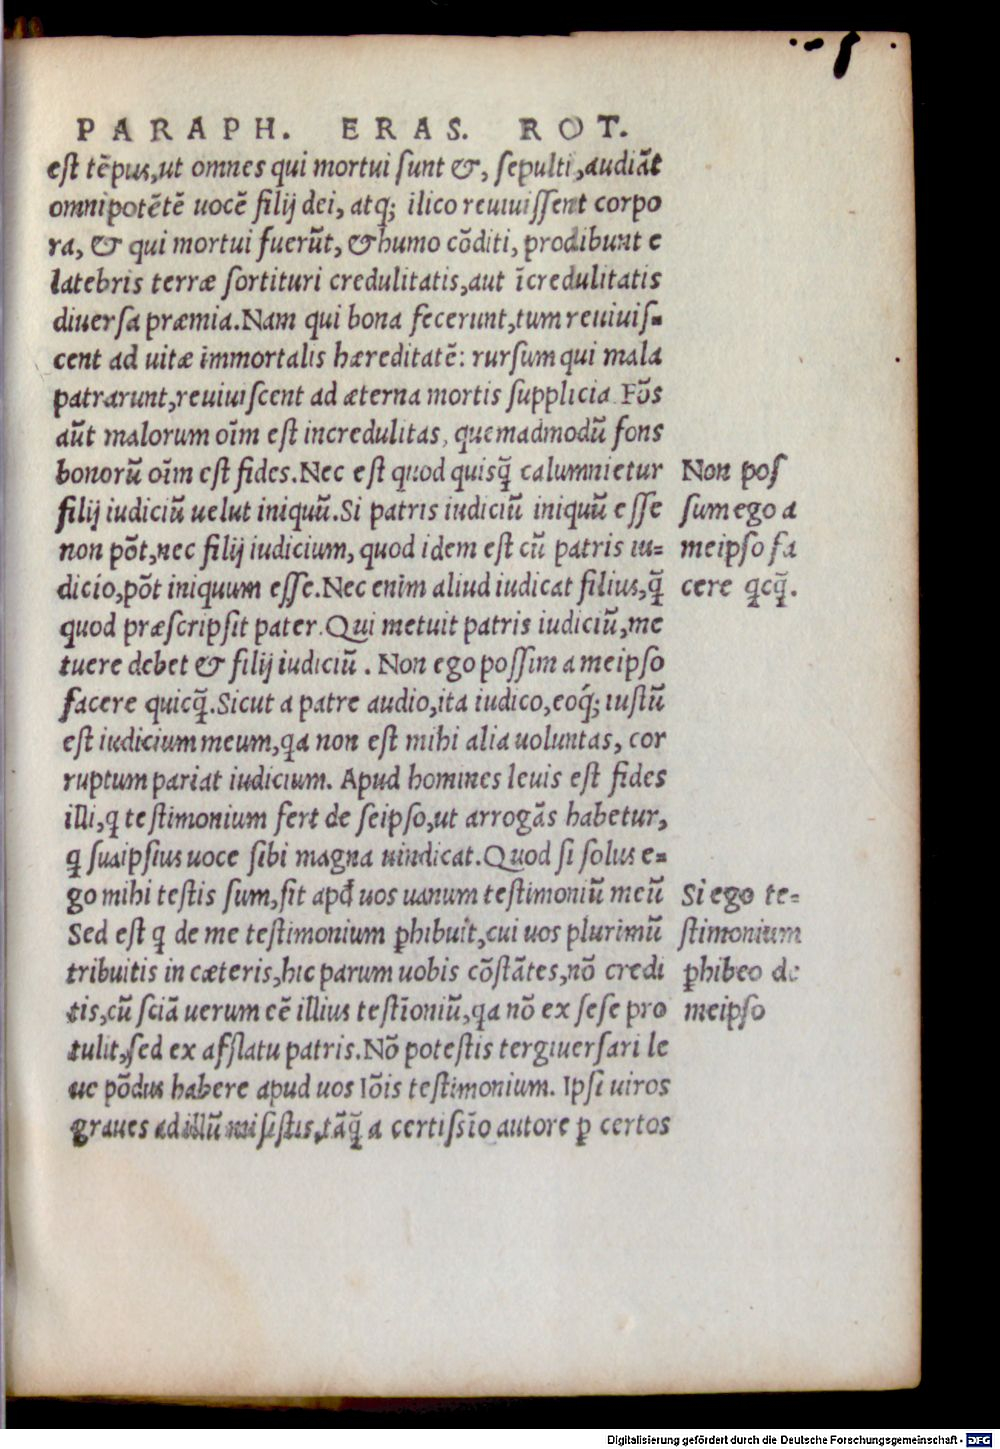 PARAPH. ERAS. ROT.
est tẽpus,ut omnes qui mortui sunt &, sepulti,audiãt
omnipotẽtẽ uocẽ filij dei, atq; ilico reuiuissent corpo
ra, & qui mortui fuerũt, & humo cõditi, prodibunt e
latebris terræ sortituri credulitatis,aut ĩcredulitatis
diuersa præmia.Nam qui bona fecerunt,tum reuiuis=
cent ad uitæ immortalis hæreditatẽ: rursum qui mala
patrarunt,reuiuiscent ad æterna mortis supplicia. Fõs
aũt malorum oĩm est incredulitas, quemadmodũ fons
bonorũ oĩm est fides.Nec est quod quisq̃ calumnietur
filij iudiciũ uelut iniquũ.Si patris iudiciũ iniquũ esse
non põt,nec filij iudicium, quod idem est cũ patris iu=
dicio,põt iniquum esse.Nec enim aliud iudicat filius,q̃
quod præscripsit pater.Qui metuit patris iudiciũ,me
tuere debet & filij iudiciũ. Non ego possim a meipso
facere quicq̃.Sicut a patre audio,ita iudico,eoq́; iustũ
est iudicium meum,qa non est mihi alia uoluntas, cor
ruptum pariat iudicium. Apud homines leuis est fides
illi,q testimonium fert de seipso,ut arrogãs habetur,
q̃ suaipsius uoce sibi magna uindicat.Quod si solus e=
go mihi testis sum,sit apđ uos uanum testimoniũ meũ
Sed est q de me testimonium ꝑhibuit,cui uos plurimũ
tribuitis in cæteris,hic parum uobis cõstãtes,nõ credi
tis,cũ sciã uerum eẽ illius testĩoniũ,qa nõ ex sese pro
tulit,sed ex afflatu patris.Nõ potestis tergiuersari le
ue põdus habere apud uos Iõis testimonium. Ipsi uiros
graues ad illũ misistis,tãq̃ a certissĩo autore ꝑ certos
Non pos
sum ego a
meipso fa
cere qcq̃.
Si ego te=
stimonium
ꝑhibeo de
meipso
Digitalisierung gefördert durch die Deutsche Forschungsgemeinschaft - DFG